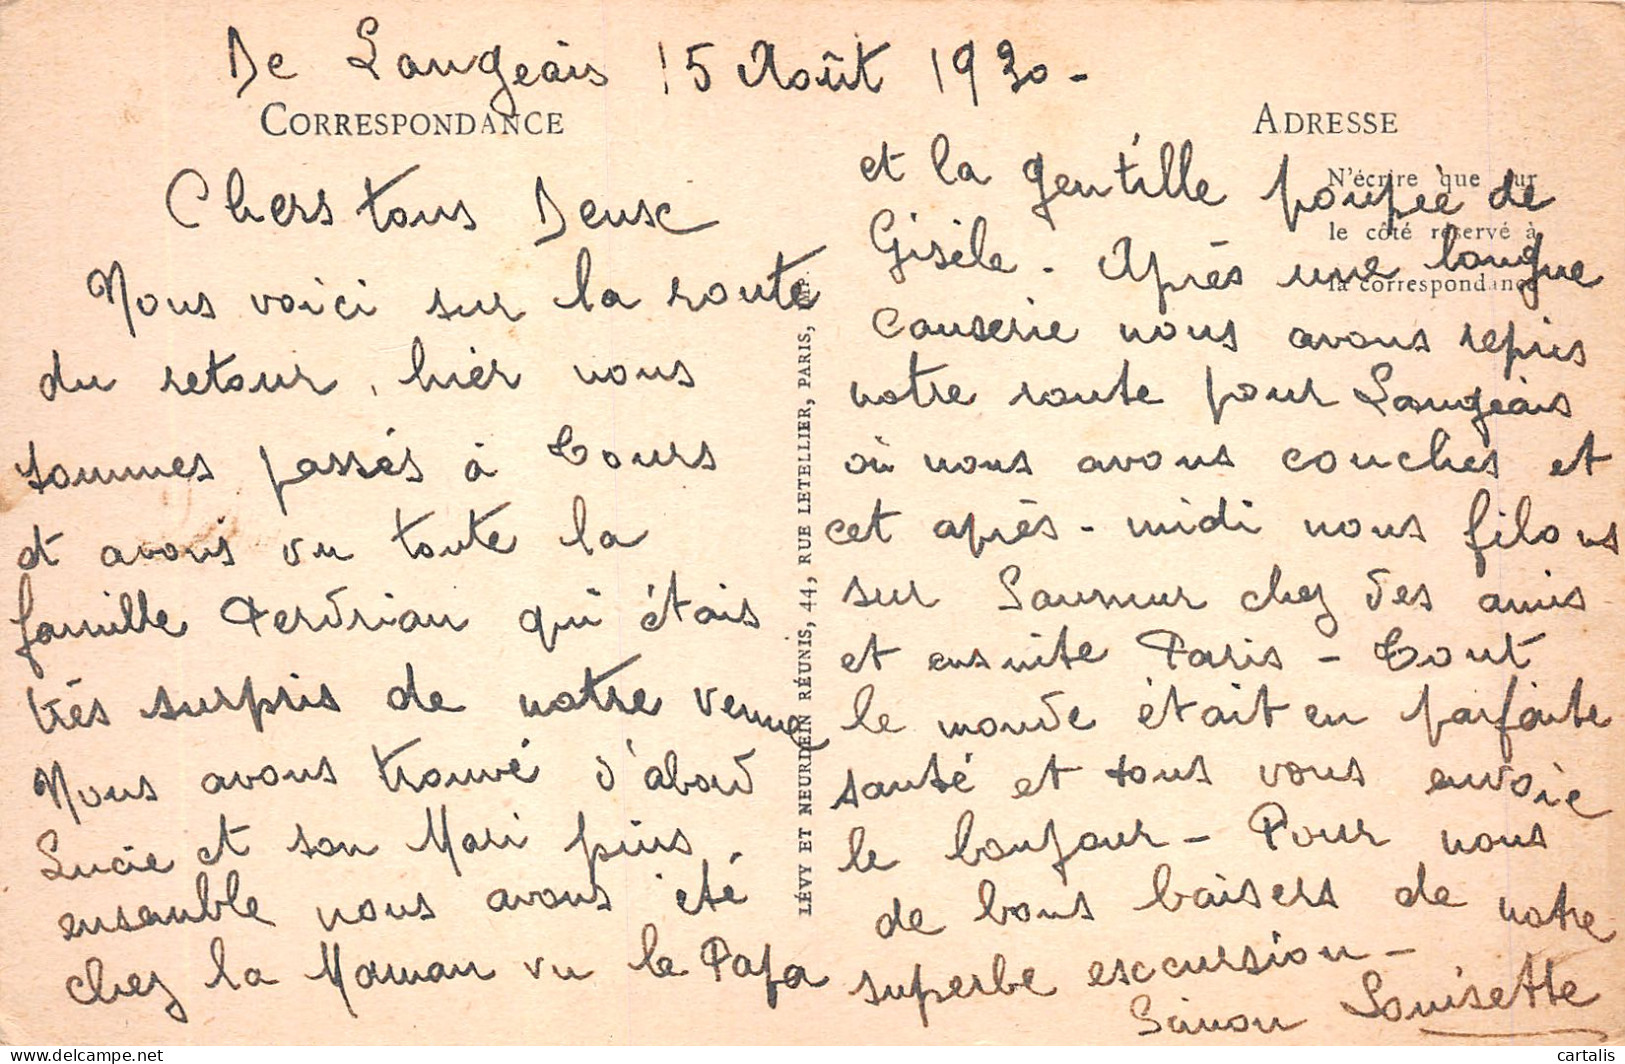 De Langeais 15 Août 1930 -
CORRESPONDANCE
Chers tous Deux
Nous voici sur la route
du retour, hier nous
sommes passés à Tours
et avons vu toute la
famille Perdrian qui étais
très surpris de notre venue
Nous avons trouvé d'abord
Lucie et son Mari puis
ensemble nous avons été
chez la Maman vu le Papa
LÉVY ET NEURDEIN RÉUNIS, 44, RUE LETELLIER, PARIS,
ADRESSE
N'écrire que sur
le côté réservé à
la correspondance
et la gentille poupée de
Gisèle. Après une longue
causerie nous avons repris
notre route pour Langeais
où nous avons couchés et
cet après-midi nous filons
sur Saumur chez des amis
et ensuite Paris - Tout
le monde était en parfaite
santé et tous vous envoie
le bonjour - Pour nous
de bons baisers de notre
superbe excursion -
Simon Louisette
cartalis